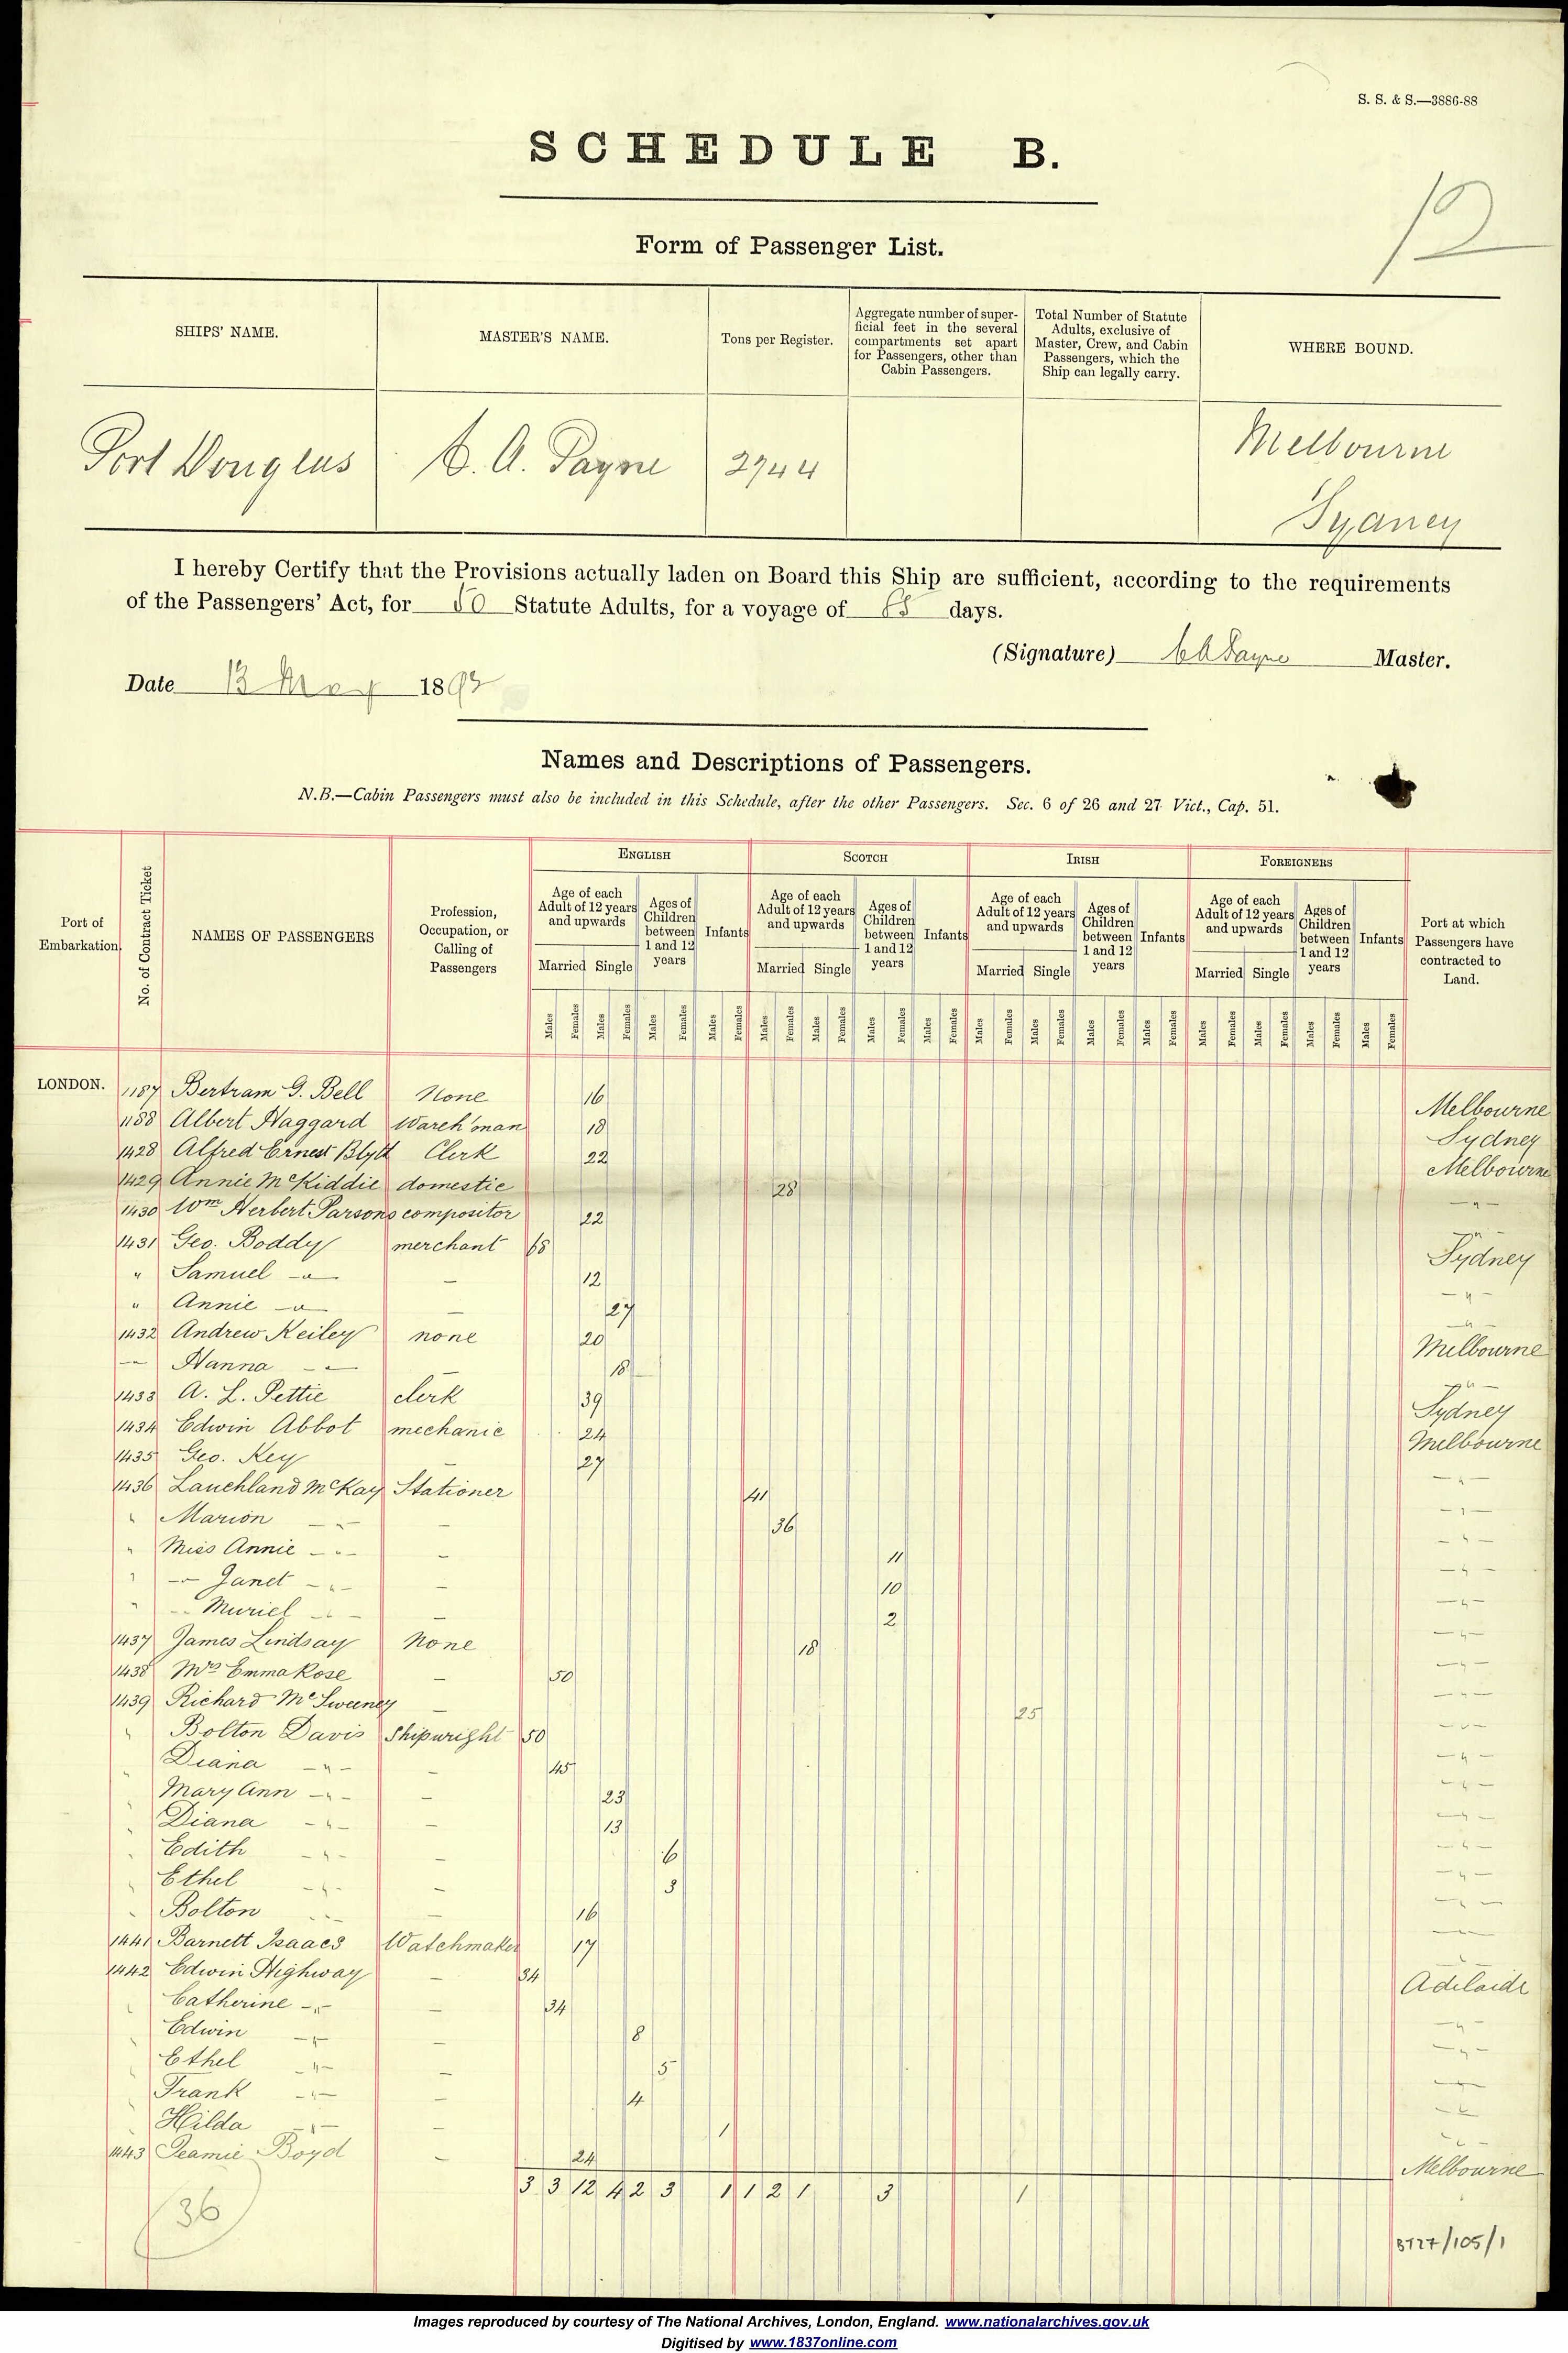 S. S. & S.—3886-88
SCHEDULE B.
12
Form of Passenger List.
SHIPS' NAME. MASTER'S NAME. Tons per Register. Aggregate number of superficial feet in the several compartments set apart for Passengers, other than Cabin Passengers. Total Number of Statute Adults, exclusive of Master, Crew, and Cabin Passengers, which the Ship can legally carry. WHERE BOUND.
Port Douglas C. A. Payne 2944 Melbourne
Sydney
I hereby Certify that the Provisions actually laden on Board this Ship are sufficient, according to the requirements
of the Passengers' Act, for 50 Statute Adults, for a voyage of days.
(Signature) C A Payne Master.
Date 13 May 1893
Names and Descriptions of Passengers.
N.B.—Cabin Passengers must also be included in this Schedule, after the other Passengers. Sec. 6 of 26 and 27 Vict., Cap. 51.
Port of Embarkation. No. of Contract Ticket NAMES OF PASSENGERS Profession, Occupation, or Calling of Passengers ENGLISH SCOTCH IRISH FOREIGNERS Port at which Passengers have contracted to Land.
Age of each Adult of 12 years and upwards Ages of Children between 1 and 12 years Infants Age of each Adult of 12 years and upwards Ages of Children between 1 and 12 years Infants Age of each Adult of 12 years and upwards Ages of Children between 1 and 12 years Infants Age of each Adult of 12 years and upwards Ages of Children between 1 and 12 years Infants
Married Single Married Single Married Single Married Single
Males Females Males Females Males Females Males Females Males Females Males Females Males Females Males Females Males Females Males Females Males Females Males Females Males Females Males Females Males Females Males Females
LONDON. 1187 Bertram G. Bell None 16 Melbourne
1188 Albert Haggard Wareh'man 18 Sydney
1428 Alfred Ernest Blyth Clerk 22 Melbourne
1429 Annie McKiddie domestic 28 — " —
1430 Wm Herbert Parsons compositor 22 — " —
1431 Geo. Boddy merchant 68 Sydney
" Samuel — " — — 12 — " —
" Annie — " — — 27 — " —
1432 Andrew Keiley none 20 Melbourne
— " — Hanna — " — — 18 — " —
1433 A. L. Pettie clerk 39 Sydney
1434 Edwin Abbot mechanic 24 Melbourne
1435 Geo. Key — 27 — " —
1436 Lauchland McKay Stationer 41 — " —
" Marion — " — — 36 — " —
" Miss Annie — " — — 11 — " —
" — " — Janet — " — — 10 — " —
" — " — Muriel — " — — 2 — " —
1437 James Lindsay None 18 — " —
1438 Mrs Emma Rose — 50 — " —
1439 Richard McSweeney — 25 — " —
" Bolton Davis Shipwright 50 — " —
" Diana — " — — 45 — " —
" Mary Ann — " — — 23 — " —
" Diana — " — — 13 — " —
" Edith — " — — 6 — " —
" Ethel — " — — 3 — " —
" Bolton — " — — 16 — " —
1441 Barnett Isaacs Watchmaker 17 — " —
1442 Edwin Highway — 34 Adelaide
" Catherine — " — — 34 — " —
" Edwin — " — — 8 — " —
" Ethel — " — — 5 — " —
" Frank — " — — 4 — " —
" Hilda — " — — 1 — " —
1443 Boyd — 24 Melbourne
3 3 12 4 2 3 1 1 2 1 3 1
36
BT27/105/1
Images reproduced by courtesy of The National Archives, London, England. www.nationalarchives.gov.uk
Digitised by www.1837online.com